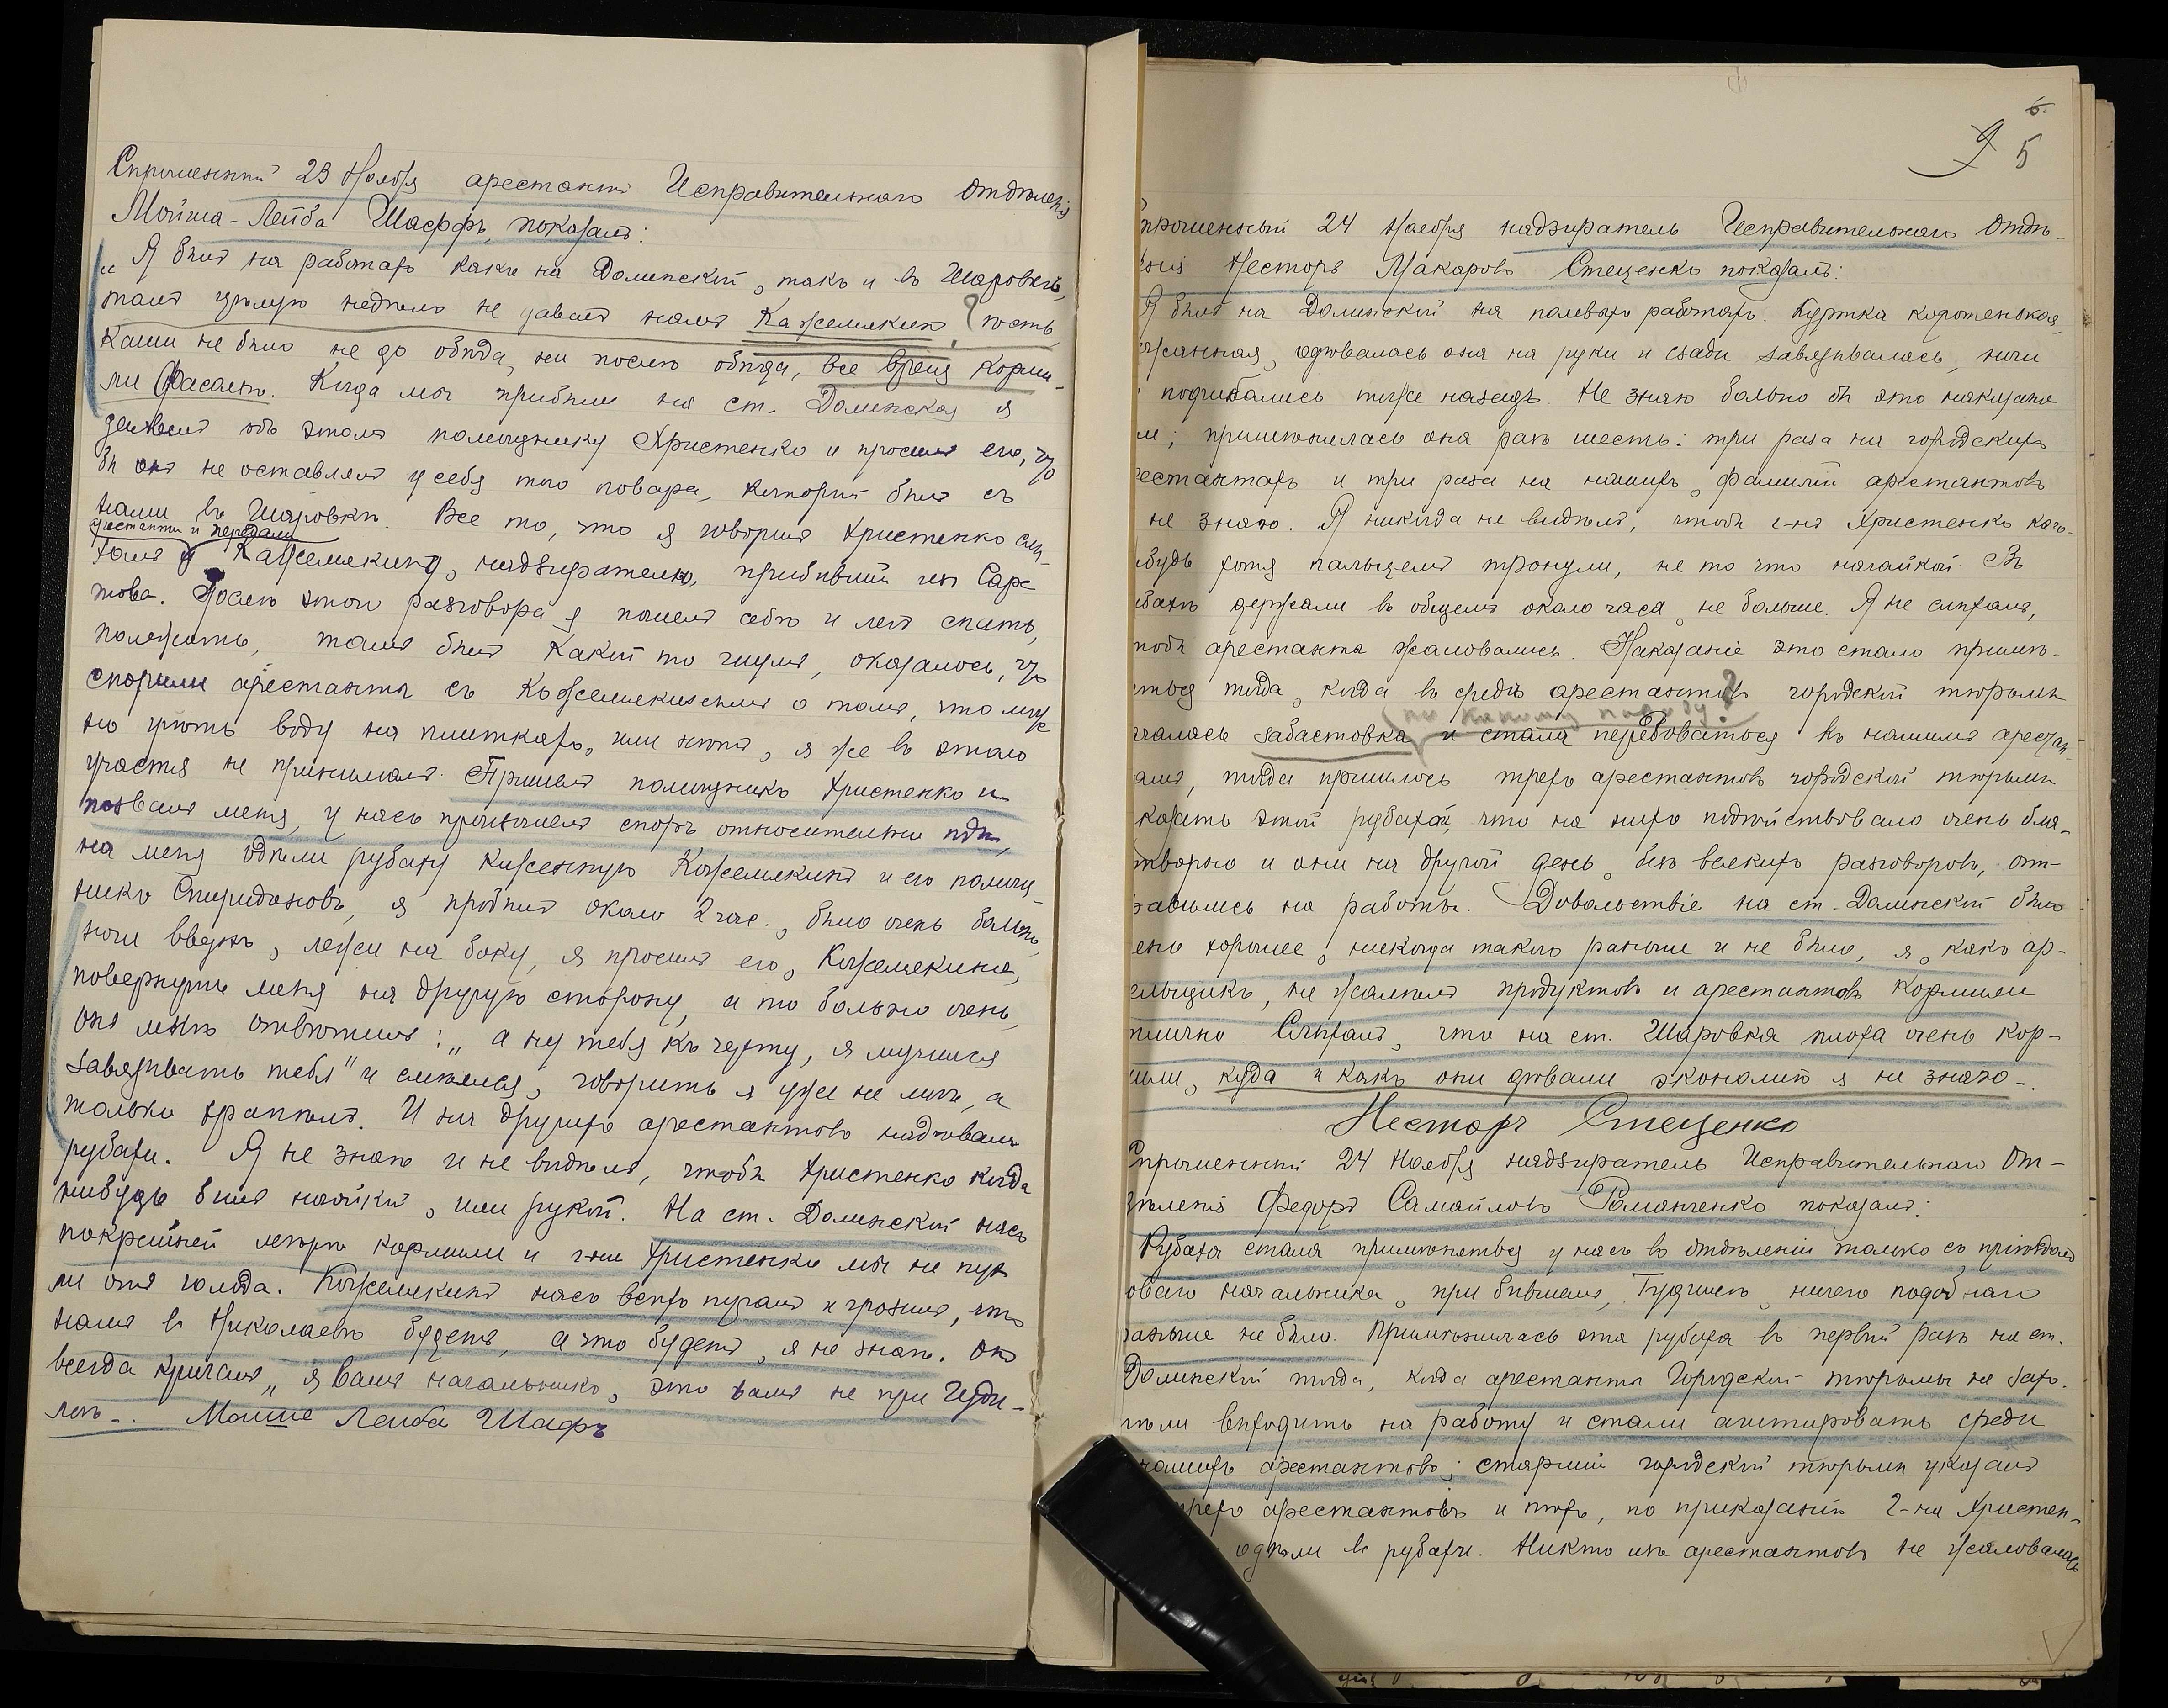 Спрошенный 23 Ноября арестантъ Исправительнаго Отдѣленія
Мойша-Лейба Шаффъ, показалъ:
„Я былъ на работахъ какъ на Долинской, такъ и въ Шаровкѣ,
тамъ цѣлую недѣлю не давалъ намъ Кажемякинъ ѣсть
каши не было не до обѣда, ни послѣ обѣда, все время корми-
ли фасолью. Когда мы прибыли на ст. Долинская я
заявилъ объ этомъ помощнику Христенко и просилъ его, что
бы онъ не оставлялъ у себя того повара, который былъ съ
нами въ Шаровкѣ. Все то, что я говорилъ Христенко слы-
арестанты и передали
хали Кажемякину, надзирателю, прибывшій изъ Сара
това. Послѣ этого разговора я пошелъ себѣ и легъ спать,
полежать, тамъ былъ какой то шумъ, оказалось, что
спорили арестанты съ Кожемякинымъ о томъ, что мож
но грѣть воду на плиткахъ, или нѣтъ, я же въ этомъ
участія не принималъ. Пришелъ помощникъ Христенко и
позвалъ меня, у насъ произошелъ споръ относительно ѣды,
на меня одѣли рубаху кожанную Кожемякинъ и его помощ-
никъ Спиридоновъ, я пробылъ около 2 час., было очень больно,
ноги вверхъ, лежа на боку, я просилъ его, Кожемякина,
повернуть меня на другую сторону, а то больно очень,
онъ мнѣ отвѣтилъ: „а ну тебя къ черту, я мучился
завязывать тебя" и смѣялся, говорить я уже не могъ, а
только храпѣлъ. И на другихъ арестантовъ надѣвали
рубахи. Я не знаю и не видѣлъ, чтобы Христенко когда
нибудь билъ нагайкой, или рукой. На ст. Долинской насъ
покрайней мѣрѣ кормили и при Христенко мы не пух
ли отъ голода. Кожемякинъ насъ всѣхъ пугалъ и грозилъ, что
намъ въ Николаевѣ будетъ, а что будетъ, я не знаю. Онъ
всегда кричалъ „я вамъ начальникъ, это вамъ не при Гуди-
мѣ". Мойше Лейба Шафъ
6.
9 5
прошенный 24 Ноября надзиратель Исправительнаго Отдѣ-
енія Несторъ Макаровъ Стеценко показалъ:
Я былъ на Долинской на полевыхъ работахъ. Куртка коротенькая,
ожанная, одѣвалась она на руки и сзади завязывалась, ноги
подгибались тоже назадъ. Не знаю больно бы это наказаніе
ли; примѣнялась она разъ шесть: три раза на городскихъ
рестантахъ и три раза на нашихъ, фамилій арестантовъ
не знаю. Я никогда не видѣлъ, чтобы г-нъ Христенко кого-
ибудь хотя пальцемъ тронули, не то что нагайкой. Въ
убахѣ держали въ общемъ около часа, не больше. Я не слыхалъ,
тобы арестанты жаловались. Наказаніе это стало примѣ-
яться тогда, когда въ среде арестантовъ городской тюрьмы
по какому поводу?
ачалась забастовка и стала передоваться къ нашимъ арестан-
амъ, тогда пришлось трехъ арестантовъ городской тюрьмы
казать этой рубахой, что на нихъ подѣйствовало очень бла-
творно и они на другой день, безъ всякихъ разговоровъ, от-
равились на работы. Довольствіе на ст. Долинской было
ень хорошее, никогда такого раньше и не было, я, какъ ар-
ельщикъ, не жалѣлъ продуктовъ и арестантовъ кормили
тлично. Слыхалъ, что на ст. Шаровка плоха очень кор-
или, куда и какъ они дѣвали экономію я не знаю.
Несторъ Стеценко
Спрошенный 24 Ноября надзиратель Исправительнаго От-
дѣленія Федоръ Самойловъ Романченко показалъ:
Рубаха стала примѣняться у насъ въ отдѣленіи только съ пріѣздомъ
оваго начальника, при бывшемъ, Гудимѣ, ничего подобнаго
раньше не было. Примѣнялась эта рубаха въ первый разъ на ст.
Долинской тогда, когда арестанты Городской тюрьмы не захо-
тѣли выходить на работу и стали агитировать среди
нашихъ арестантовъ; старшій городской тюрьмы указалъ
трехъ арестантовъ и тѣхъ, по приказанію г-на Христен-
одѣли въ рубахи. Никто изъ арестантовъ не жаловались